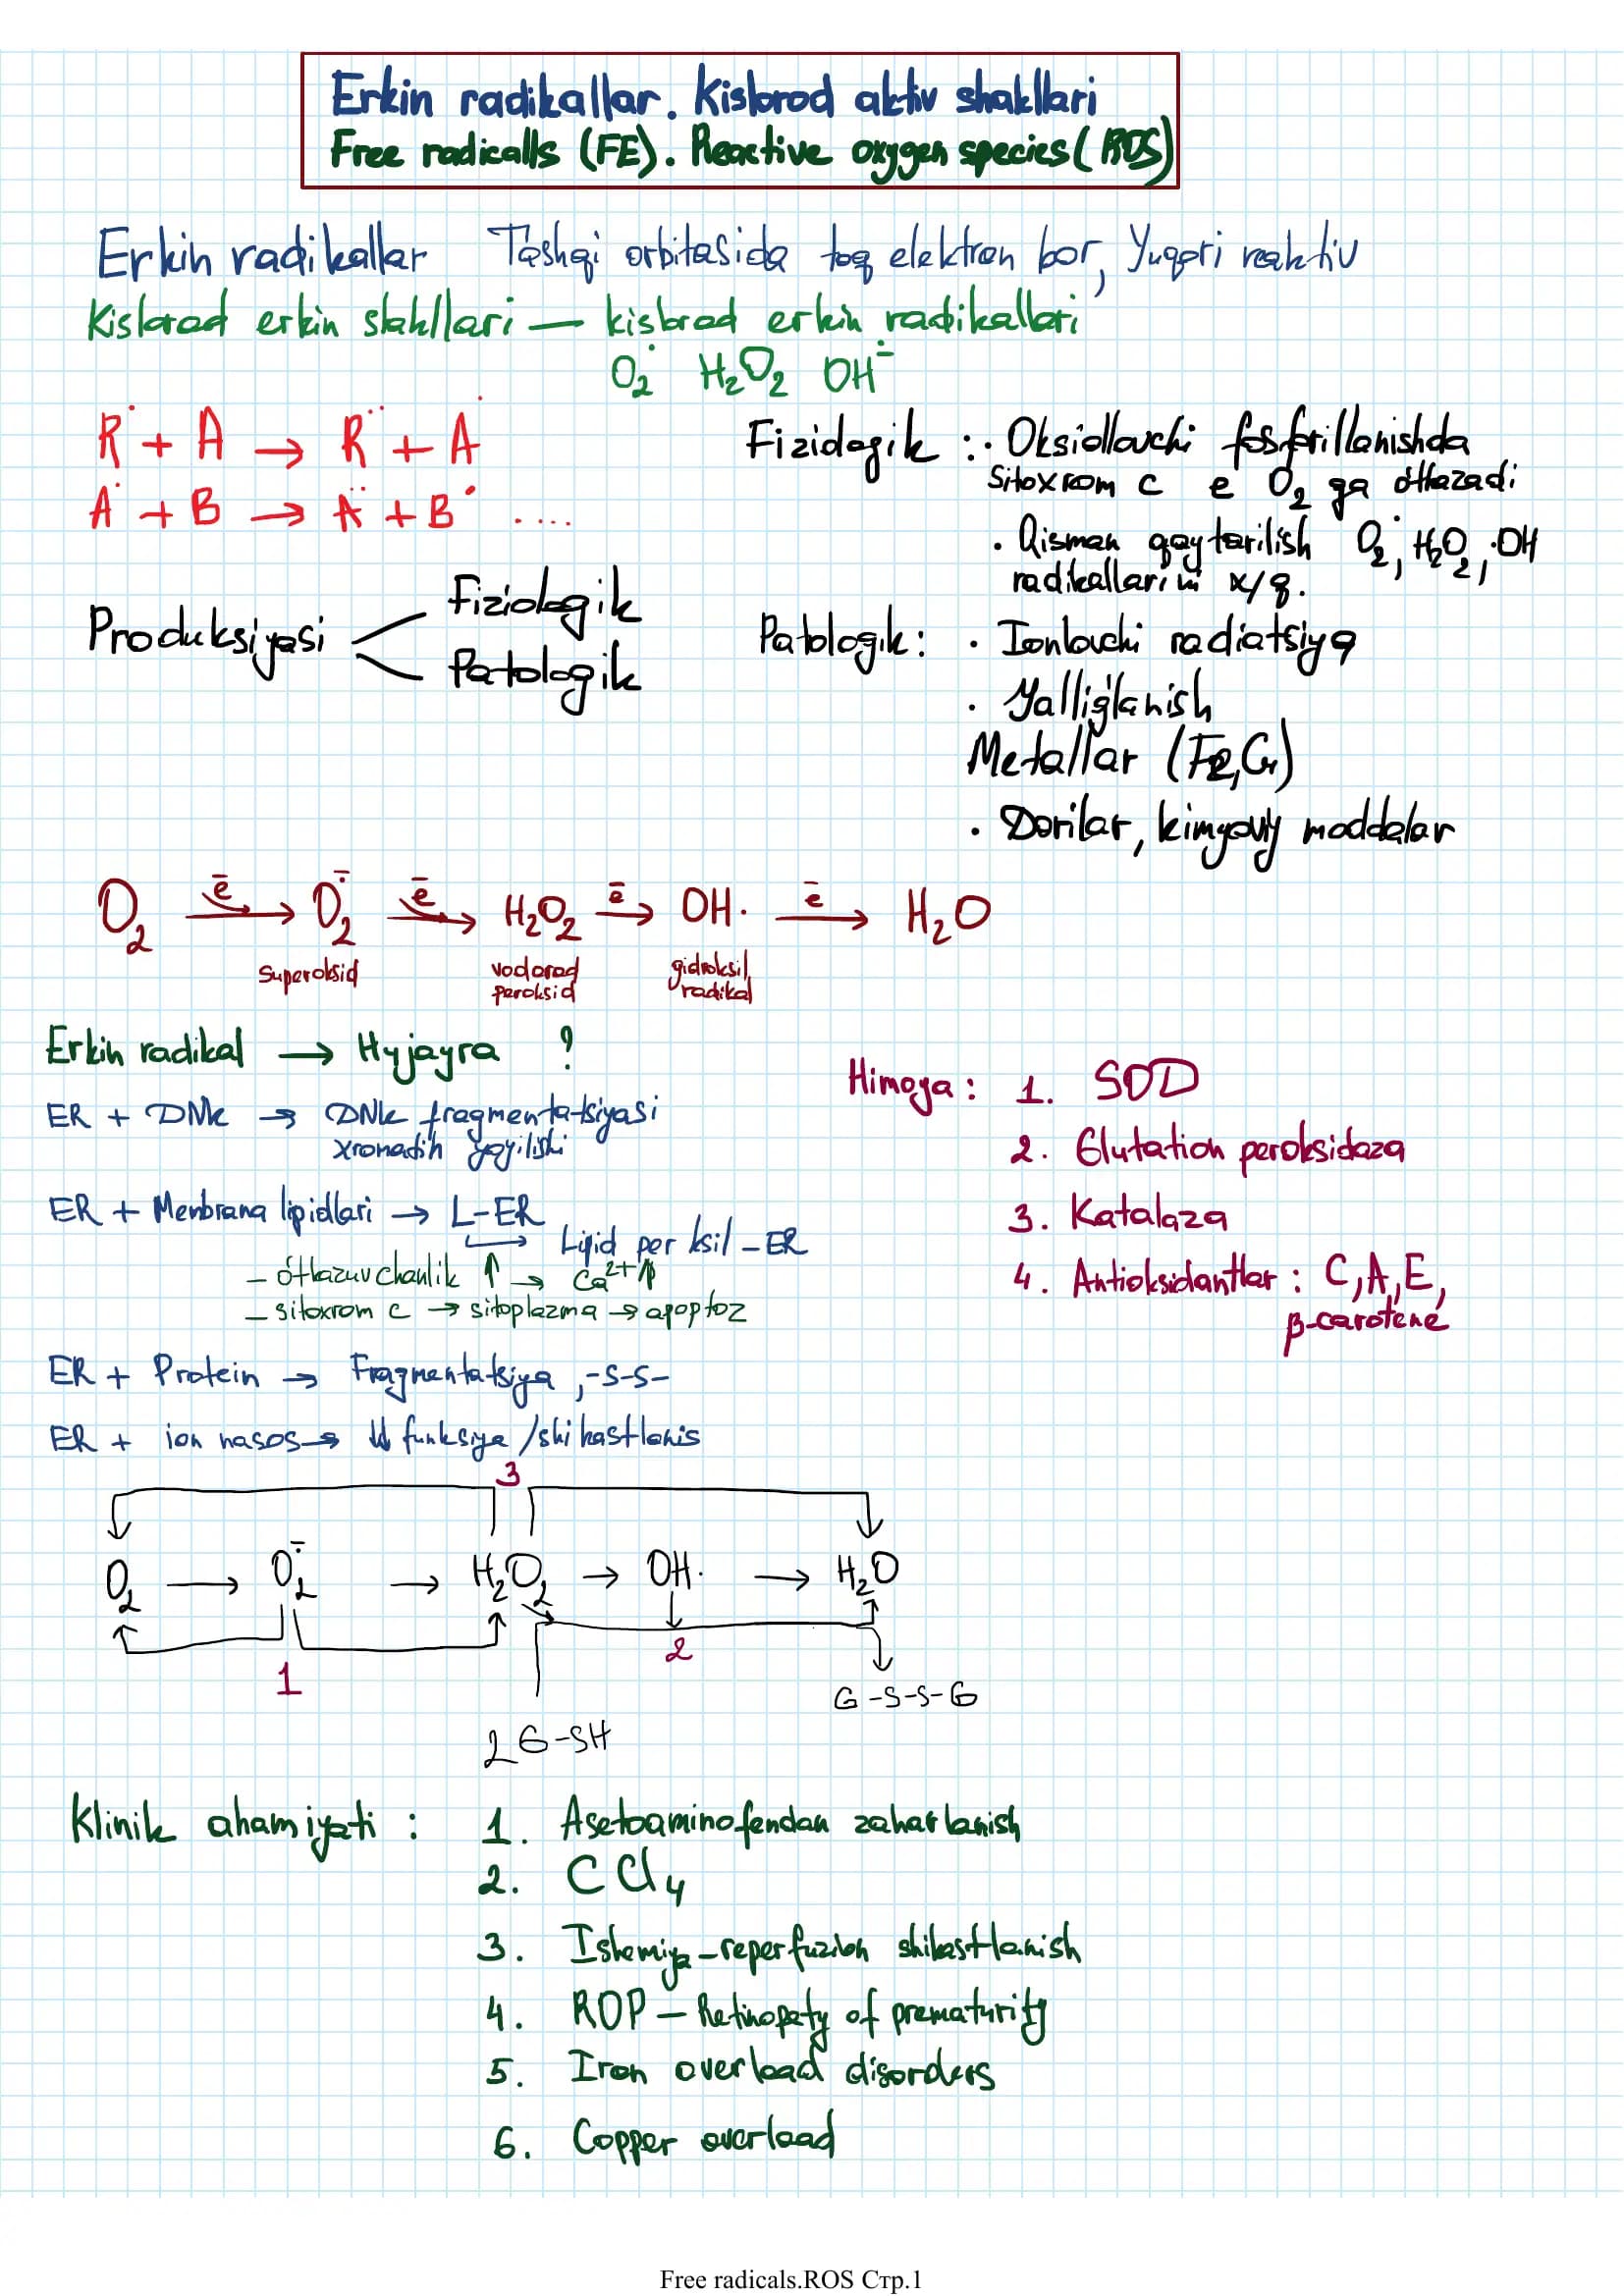 Erkin radikallar. Kislorod aktiv shakllari
Free radicalls (FE). Reactive oxygen species (ROS)
Erkin radikallar Tashqi orbitasida toq elektron bor, Yuqori reaktiv
Kislorod erkin shakllari — kislorod erkin radikallari
O₂˙ H₂O₂ OH∸
R˙ + A → R¨ + A˙
A˙ + B → A¨ + B˙ ....
Produksiyasi
Fiziologik
Patologik
Fiziologik :· Oksidlovchi fosforillanishda
Sitoxrom c e O₂ ga o'tkazadi
· Qisman qaytarilish O₂˙, H₂O₂, ·OH
radikallarini x/q.
Patologik: · Ionlovchi radiatsiya
· Yallig'lanish
Metallar (Fe, Cu)
· Dorilar, kimyoviy moddalar
O₂ →ē O₂∸ →ē H₂O₂ →ē OH· →ē H₂O
Superoksid vodorod peroksid gidroksil radikal
Erkin radikal → Hujayra ?
ER + DNK → DNK fragmentatsiyasi
xromatin yoyilishi
ER + Menbrana lipidlari → L-ER
Lipid per ksil - ER
- o'tkazuvchanlik ↑ → Ca²⁺ ⇑
- sitoxrom c → sitoplazma → apoptoz
ER + Protein → Fragmentatsiya, -S-S-
ER + ion nasos → ⇓ funksiya / shikastlanis
Himoya: 1. SOD
2. Glutation peroksidaza
3. Katalaza
4. Antioksidantlar : C, A, E,
β-carotene
3
O₂ → O₂∸ → H₂O₂ → OH· → H₂O
1
2
G-S-S-G
2 G-SH
Klinik ahamiyati : 1. Asetoaminofendan zaharlanish
2. CCl₄
3. Ishemiya-reperfuzion shikastlanish
4. ROP - Retinopaty of prematurity
5. Iron overload disorders
6. Copper overload
Free radicals.ROS Стр.1